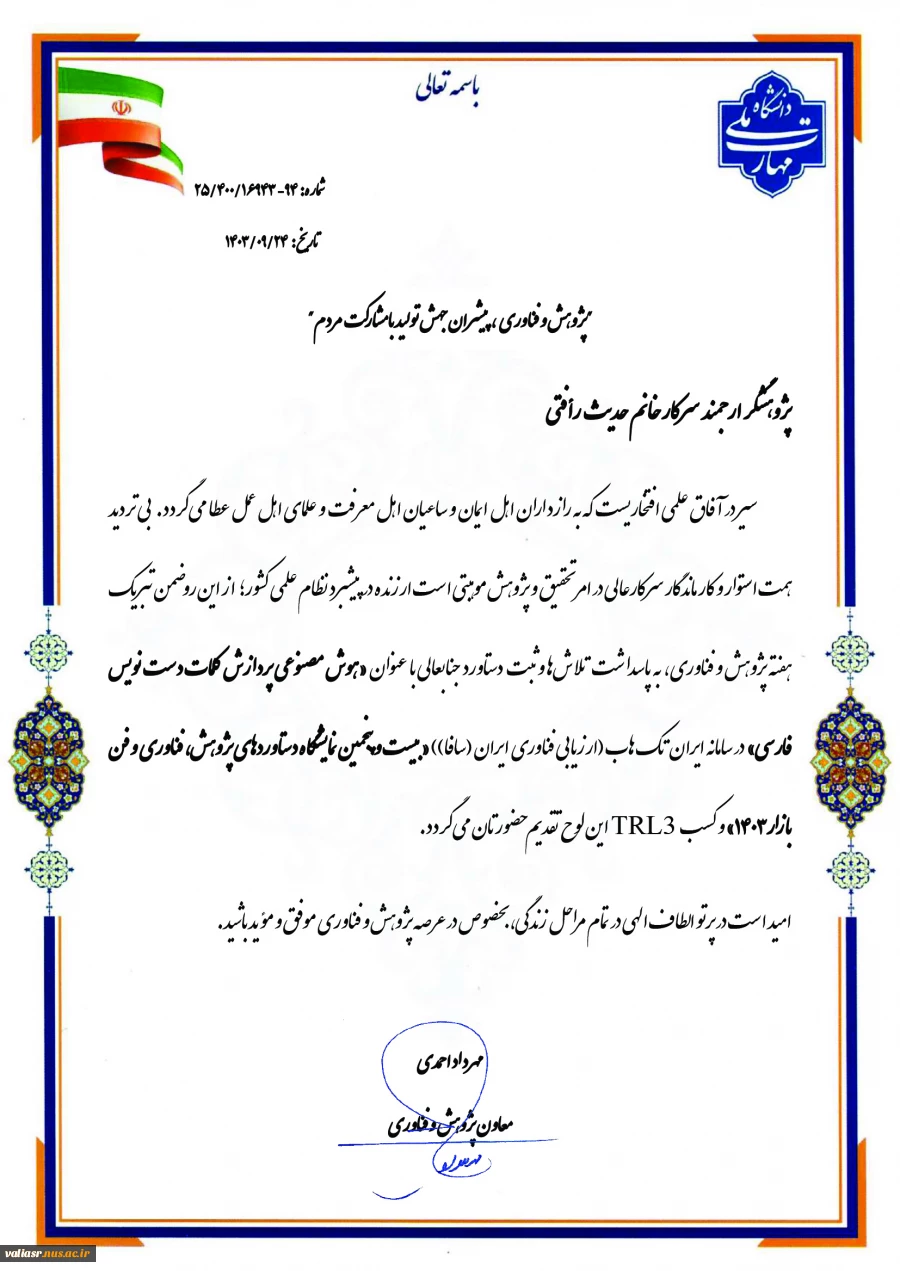 باسمه تعالی
دانشگاه
ملی
مهارت
شماره: ۹۴-۲۵/۴۰۰/۱۶۹۴۳
تاریخ: ۱۴۰۳/۰۹/۲۴
"پژوهش و فناوری، پیشران جهش تولید با مشارکت مردم"
پژوهشگر ارجمند سرکار خانم حدیث رأفتی
سیر در آفاق علمی افتخاریست که به رازداران اهل ایمان و ساعیان اهل معرفت و علمای اهل عمل عطا می‌گردد. بی‌تردید
همت استوار و کار ماندگار سرکارعالی در امر تحقیق و پژوهش موهبتی است ارزنده در پیشبرد نظام علمی کشور؛ از این رو ضمن تبریک
هفته پژوهش و فناوری، به پاسداشت تلاش‌ها و ثبت دستاورد جنابعالی با عنوان «هوش مصنوعی پردازش کلمات دست نویس
فارسی» در سامانه ایران تک هاب (ارزیابی فناوری ایران (سافا)) «بیست و پنجمین نمایشگاه دستاوردهای پژوهش، فناوری و فن
بازار۱۴۰۳» و کسب TRL3 این لوح تقدیم حضورتان می‌گردد.
امید است در پرتو الطاف الهی در تمام مراحل زندگی، بخصوص در عرصه پژوهش و فناوری موفق و مؤید باشید.
مهرداد احمدی
معاون پژوهش و فناوری
valiasr.nus.ac.ir